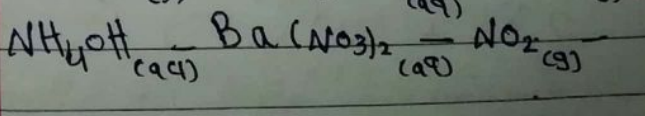 (aq)
NH4OH(aq) - Ba(NO3)2(aq) - NO2(g) -